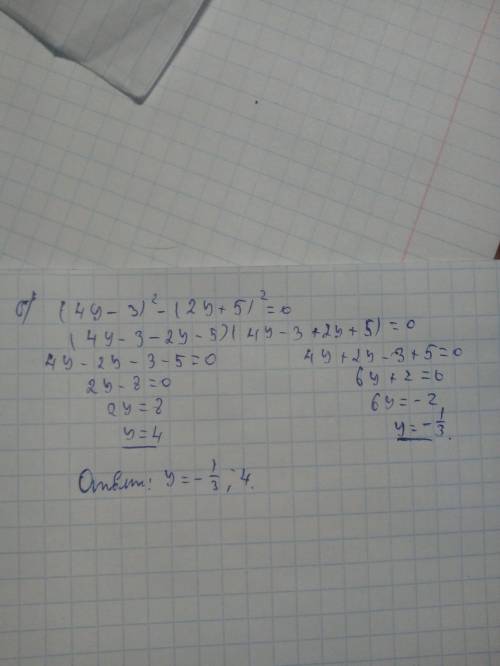 б) (4y - 3)² - (2y + 5)² = 0
(4y - 3 - 2y - 5)(4y - 3 + 2y + 5) = 0
4y - 2y - 3 - 5 = 0
2y - 8 = 0
2y = 8
y = 4
4y + 2y - 3 + 5 = 0
6y + 2 = 0
6y = -2
y = -1/3.
Ответ: y = -1/3; 4.